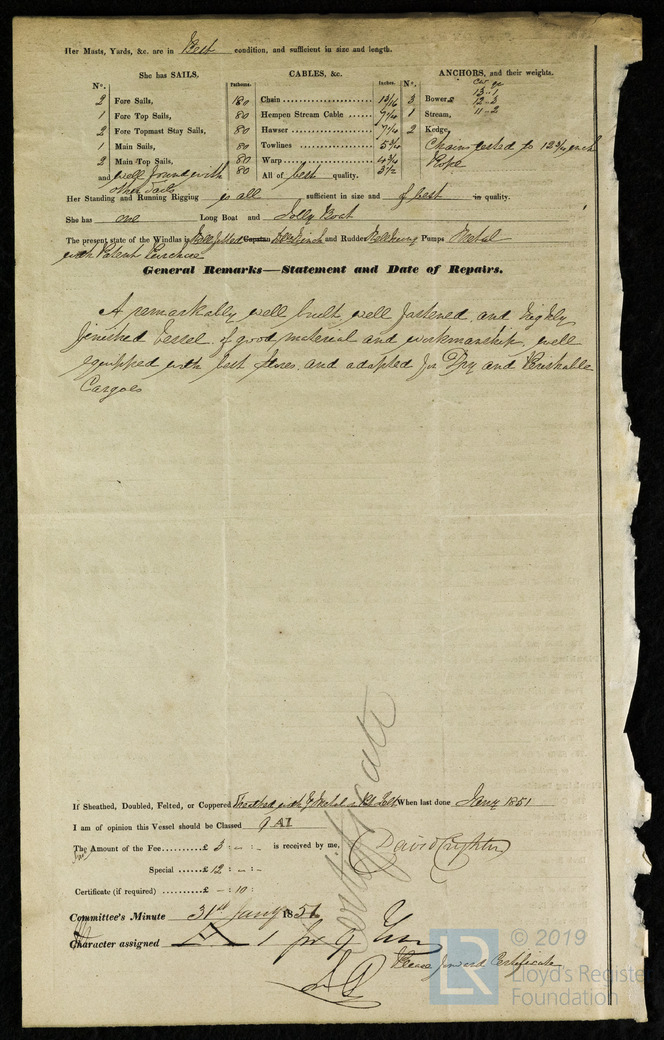 Her Masts, Yards, &c. are in Best condition, and sufficient in size and length.
She has SAILS. CABLES, &c. ANCHORS, and their weights.
No. Fathoms. Inches. No. Cw qr
2 Fore Sails, 180 Chain 1 3/16 3 Bowers 13..1
12..3
11..2
1 Fore Top Sails, 80 Hempen Stream Cable 1 Stream,
2 Fore Topmast Stay Sails, 80 Hawser 2 Kedge,
1 Main Sails, 80 Towlines Chains tested to 12 3/4 inch
2 Main Top Sails, 80 Warp Rope
and well found with 80 All of best quality. 3 1/2
other Sails
Her Standing and Running Rigging is all sufficient in size and of best in quality.
She has one Long Boat and Jolly Boat
The present state of the Windlass is Well fitted Capstan Winch and Rudder Well hung Pumps Metal
with Patent Purchase
General Remarks—Statement and Date of Repairs.
A remarkably well built, well fastened, and highly
finished Vessel, of good material and workmanship, well
equipped with best Stores, and adapted for Dry and Perishable
Cargoes
If Sheathed, Doubled, Felted, or Coppered Sheathed with Y Metal Felt When last done Jany 1851
I am of opinion this Vessel should be Classed 9 A1
The Amount of the Fee £ 5 : – : – is received by me,
David Crighton
Special £ 12 : – : –
Certificate (if required) £ – : 10 :
Certificate
Committee's Minute 31st Jany 1851
Character assigned A 1 for 9 Years
Please forward Certificate
LR
© 2019
Lloyd's Register
Foundation